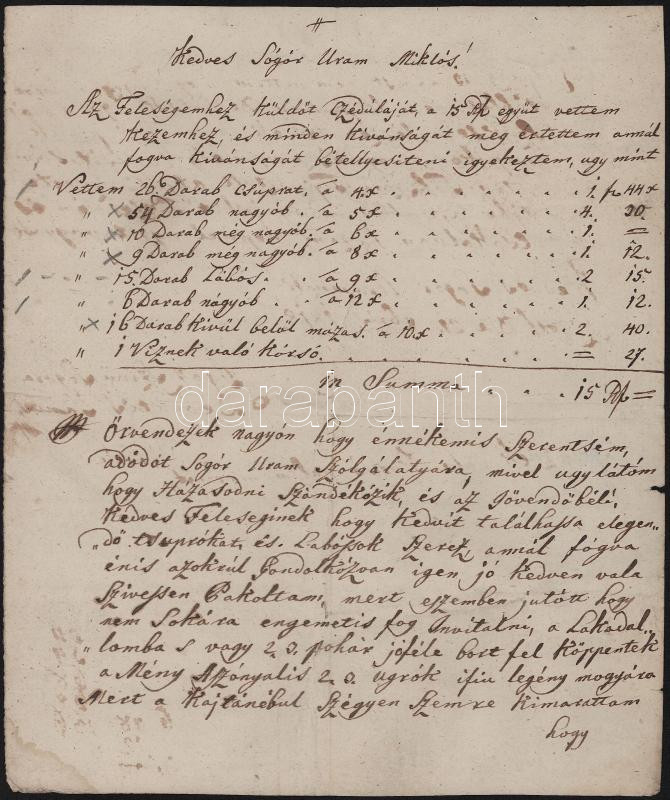 Kedves Sógór Uram Miklós!
Az Feleségemhez küldöt Czéduláját, a 15 Rf együt vettem
kezemhez, és minden kivánságát meg értettem annál
fogva kivánságát bétellyesiteni igyekeztem, ugy mint
Vettem 26. Darab csuprat. a 4x . . . . . . 1. f 44x
" 54 Darab nagyób. a 5x . . . . . . 4. 30.
" 10 Darab még nagyób. a 6x . . . . . . 1. =
" 9 Darab még nagyób. a 8x . . . . . . 1. 12.
" 15. Darab Lábós. a 9x . . . . . . 2 15.
" 6 Darab nagyób . a 12x . . . . . . 1. 12.
" 16 Darab kivül belöl mázas. a 10x . . . . 2. 40.
" 1 Viznek való kórsó. . . . . . . . = 27.
in Summa . . . 15 Rf =
darabanth
Örvendezek nagyón hogy énnékemis Szerentsém,
adódót Sogór Uram Szólgálatyára, mivel ugy látóm
hogy Házasodni Szándékózik, és az Jövendőbéli,
kedves Feleséginek hogy kedvit találhassa elegen„
„dö tsuprókat, és Labóssok Szerez, annál fógva
énis azokrúl Gondolkózván igen jó kedven vala
Szivessen Pakoltam, mert eszemben jutótt hogy
nem Sokára engemetis fog Invitalni, a Lakodal„
„lomba s vagy 2 3. pohár jóféle bort fel köppentek
a Mény Aszónyalis 2 3. ugrók ifiu legény mogyára
Mert a Kajtánébul Szégyen Szemre kimarattam
hogy